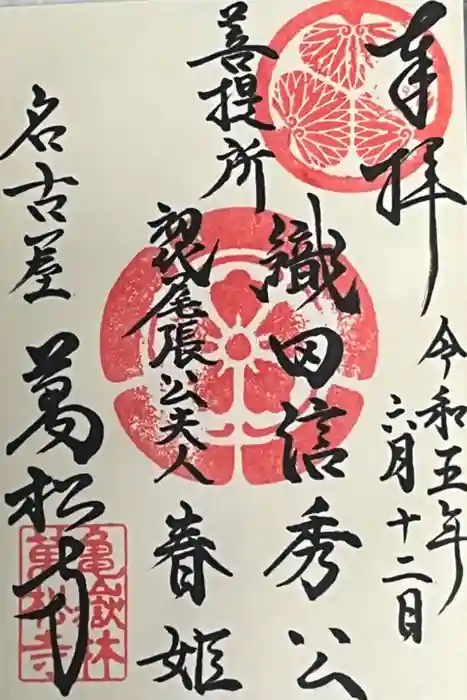 奉拝
令和五年
六月十二日
菩提所
織田信秀公
初代尾張公夫人
春姫
名古屋
萬松寺
亀嶽林
萬松寺